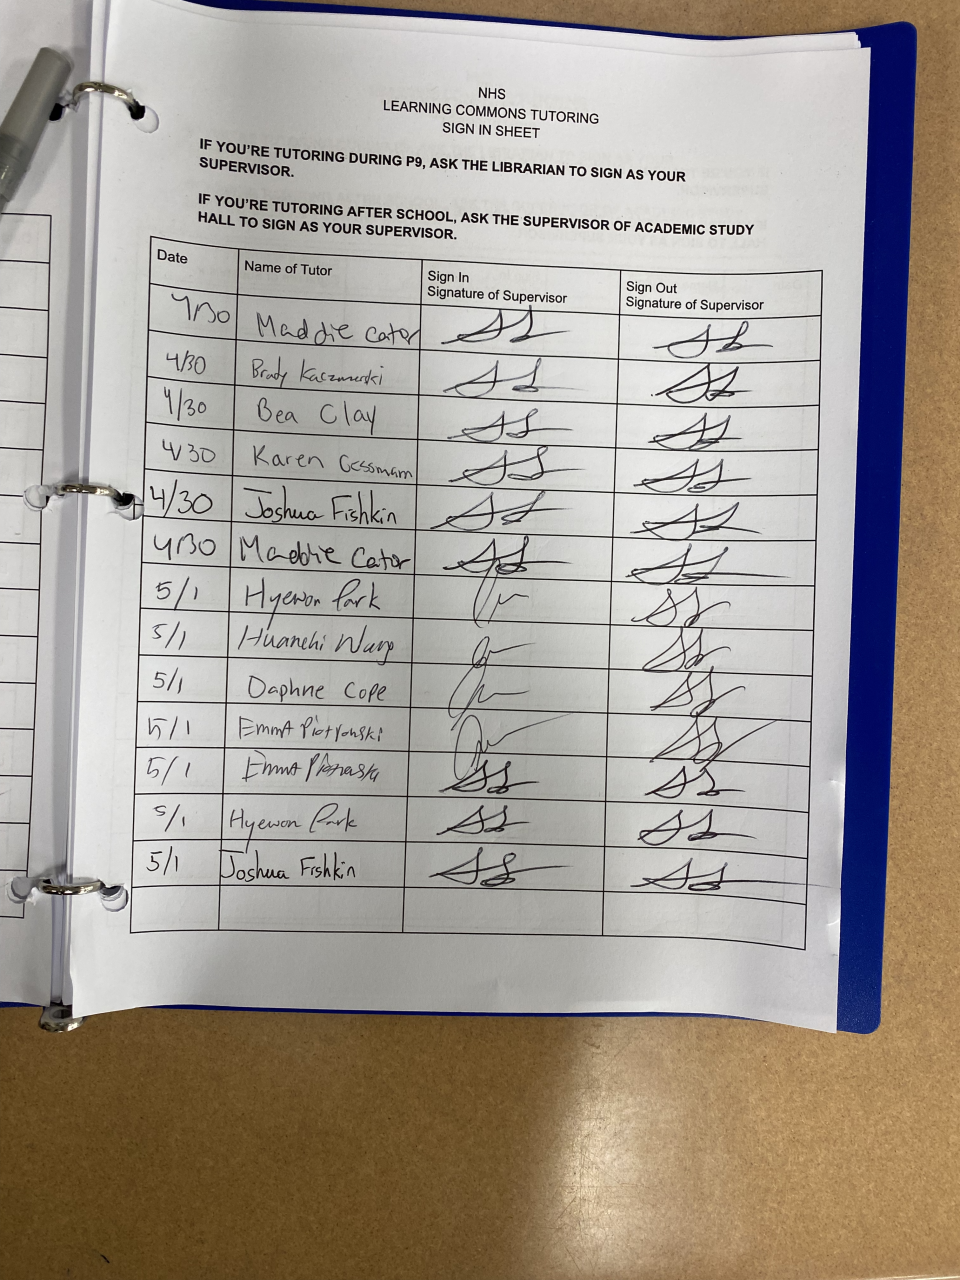 NHS
LEARNING COMMONS TUTORING
SIGN IN SHEET
IF YOU'RE TUTORING DURING P9, ASK THE LIBRARIAN TO SIGN AS YOUR
SUPERVISOR.
IF YOU'RE TUTORING AFTER SCHOOL, ASK THE SUPERVISOR OF ACADEMIC STUDY
HALL TO SIGN AS YOUR SUPERVISOR.
Date Name of Tutor Sign In Signature of Supervisor Sign Out Signature of Supervisor
4/30 Maddie Cator
4/30 Brady Kaczmarski
4/30 Bea Clay
4/30 Karen Gessmam
4/30 Joshua Fishkin
4/30 Maddie Cator
5/1 Hyewon Park
5/1 Huanchi Wang
5/1 Daphne Cope
5/1 Emma
5/1 Emma
5/1 Hyewon Park
5/1 Joshua Fishkin